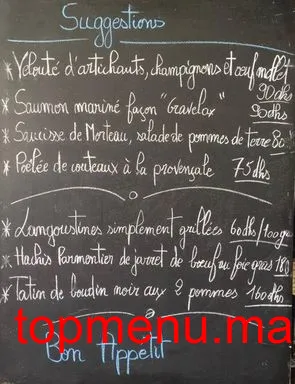 Suggestions
* Velouté d'artichauts, champignons et oeuf mollet
90 dhs
* Saumon mariné façon "Gravelax" 90 dhs
* Saucisse de Morteau, salade de pommes de terre 80
* Poêlée de couteaux à la provençale 75 dhs
* Langoustines simplement grillées 60 dhs/100gr
* Hachis Parmentier de jarret de boeuf au foie gras 180
* Tatin de boudin noir aux 2 pommes 160 dhs
topmenu.ma
Bon Appétit